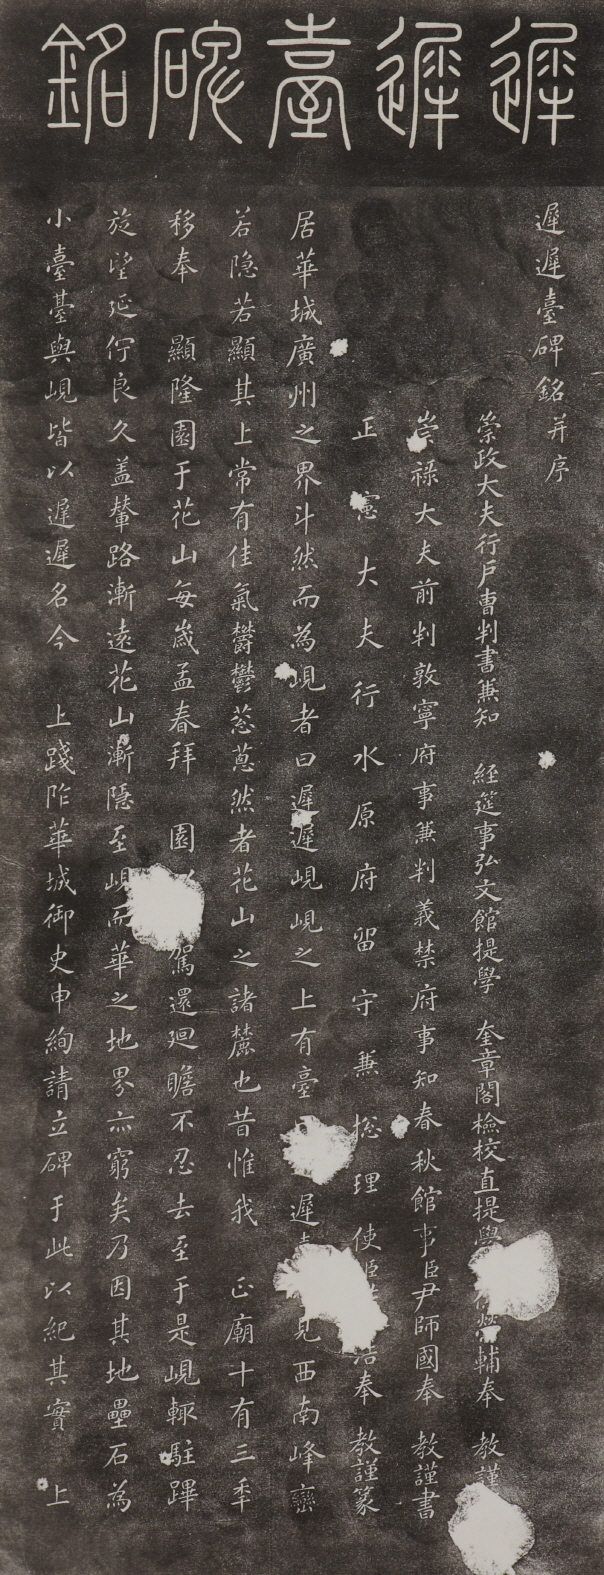 遲遲臺碑銘
遲遲臺碑銘并序
崇政大夫行戶曹判書兼知 經筵事弘文館提學 奎章閣檢校直提學 榮輔奉 教謹
崇祿大夫前判敦寧府事兼判義禁府事知春秋館事臣尹師國奉 教謹書
正憲大夫行水原府留守兼摠理使臣 浩奉 教謹篆
居華城廣州之界斗然而為峴者曰遲遲峴峴之上有臺 遲 見西南峰巒
若隐若顯其上常有佳氣欝鬱葱蔥然者花山之諸麓也昔惟我 正廟十有三秊
移奉 顯隆園于花山每歲孟春拜 園 駕還廻瞻不忍去至于是峴輙駐蹕
旋望延佇良久盖輦路漸遠花山漸隱至峴而華之地界亦窮矣乃因其地壘石為
小臺臺與峴皆以遲遲名今 上踐阼華城御史申絢請立碑于此以紀其實 上